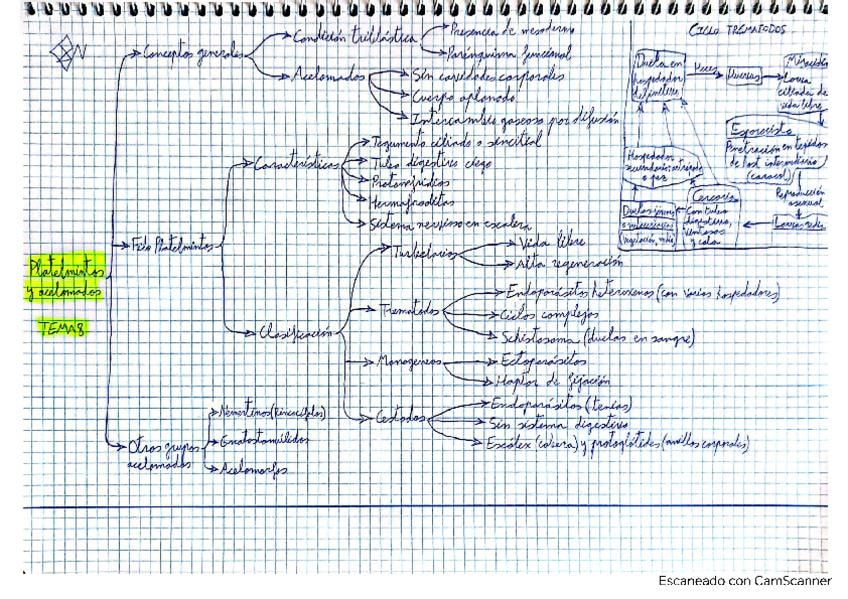 CICLO TREMATODOS
Conceptos generales
Condición triblástica
Presencia de mesodermo
Parénquima funcional
Acelomados
Sin cavidades corporales
Cuerpo aplanado
Intercambio gaseoso por difusión
Platelmintos
y acelomados
TEMA 8
Filo Platelmintos
Características
Tegumento ciliado o sincitial
Tubo digestivo ciego
Protonefridios
Hermafroditas
Sistema nervioso en escalera
Clasificación
Turbelarios
Vida libre
Alta regeneración
Trematodos
Endoparásitos heteroxenos (con varios hospedadores)
Ciclos complejos
Schistosoma (duelas en sangre)
Monogeneos
Ectoparásitos
Haptor de fijación
Cestodos
Endoparásitos (tenias)
Sin sistema digestivo
Escólex (cabeza) y proglótides (anillos corporales)
Otros grupos
acelomados
Nemertinos
Gnatostomúlidos
Acelomorfos
Duela en
hospedador
definitivo
Heces
Huevos
Miracidio
Larva
ciliada de
vida libre
Esporocisto
Penetración en tejidos
de host intermediario
(caracol)
Reproducción
asexual
Larvas redia
Cercaria
Con tubo
digestivo,
ventosas
y cola
Hospedador
o pez
Escaneado con CamScanner